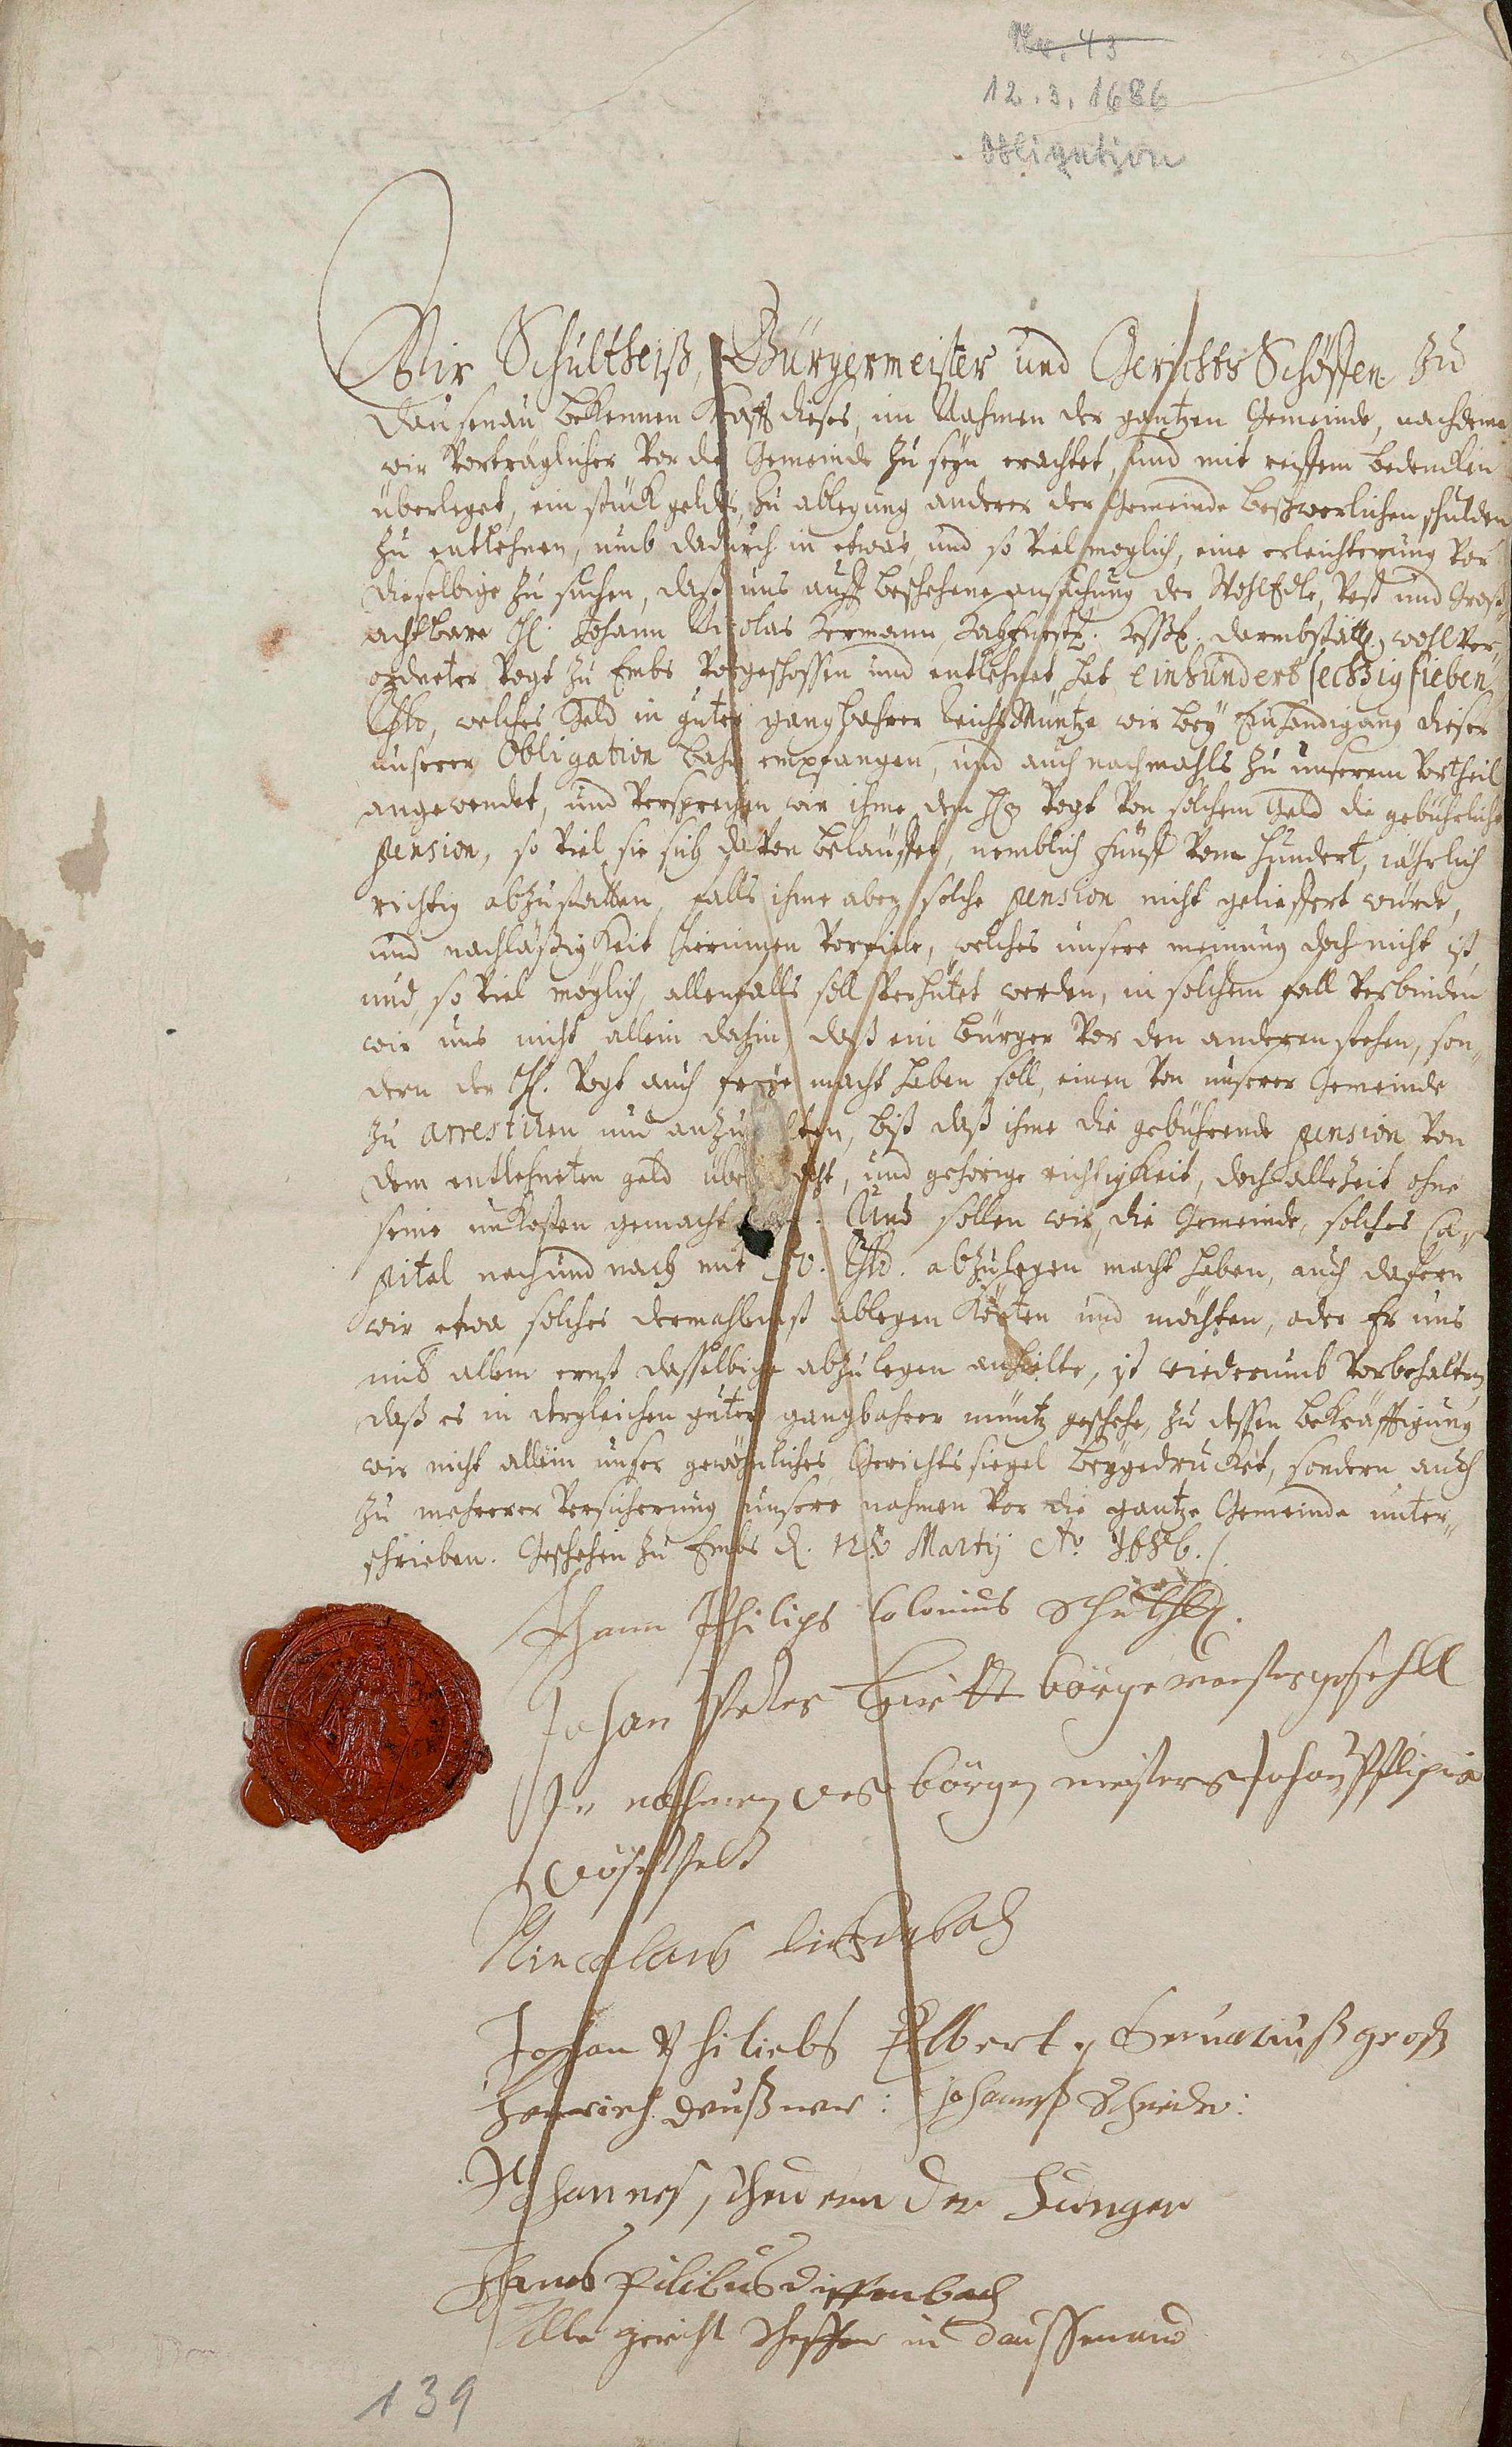 No. 43
12.3.1686
Obligation
Wir Schultheiß, Bürgermeister und Gerichts Schöffen zu
Dausenau bekennen Krafft dieses, im Nahmen der gantzen Gemeinde, nachdeme
wir vorträglicher vor die Gemeinde zu seyn erachtet, und mit reiffem bedencken
überleget, ein stück geldts, zu ablegung anderer der Gemeinde beschwerlichen schulden
zu entlehnen, umb dadurch in etwas, und so viel moglich, eine erleichterung vor
dieselbige zu suchen, daß uns auff beschehene ansuchung der WohlEdle, Vest und Groß
achtbare H. Johann Nicolas Hermann, darmbstätt. wohl Ver„
ordneter Vogt zu Embs vorgeschossen und entlehnet hat einhundert sechzig sieben
welches Geld in guter gangbahrer Reichs Müntze wir bey Einhändigung dieser
unserer Obligation bahr empfangen, und auch nachmahls zu unserem Vortheil
angewendet, und versprechen wir ihme dem H. Vogt von solchem Geld die gebührliche
pension, so viel sie sich davon beläuffet, nemblich fünff vom hundert, jährlich
richtig abzustatten, falls ihme aber solche pension nicht gelieffert würde,
und nachläßigkeit hierinnen vorfiele, welches unsere meinung doch nicht ist,
und, so viel möglich, allenfalls soll verhütet werden, in solchem fall verbinden
wir uns nicht allein dahin, daß ein bürger vor den anderen stehen, son„
dern der H. Vogt auch freye macht haben soll, einen von unserer Gemeinde
zu arrestiren und anzuhalten, biß daß ihme die gebührende pension von
dem entlehneten geld überbracht, und gehörige richtigkeit, doch allezeit ohne
seine unkosten gemacht. Und sollen wir, die Gemeinde, solches Ca„
pital nach und nach mit 50. abzulegen macht haben, auch dafern
wir etwa solches dermahleinst ablegen könten und möchten, oder Er uns
mit allem ernst dasselbige abzulegen anhielte, ist wiederumb vorbehalten,
daß es in dergleichen guter gangbahrer müntz geschehe, zu dessen bekräfftigung
wir nicht allein unser gewöhnliches Gerichtssiegel beygedrucket, sondern auch
zu mehrerer versicherung unsere nahmen vor die gantze Gemeinde unter„
schrieben. Geschehen zu Embs d. 12t. Martij Ao 1686.
Johann Philips Colonius Schulth.
Johan Peter börgemeister
In nahmen des börgenmeisters Johan
Johan Philiebs Elbert, groß
Henrich: Johannes Schneider:
Johannes der Junger
Hans Pilibus Diffenbach
Alle gericht Scheffen in Daussenaud
139